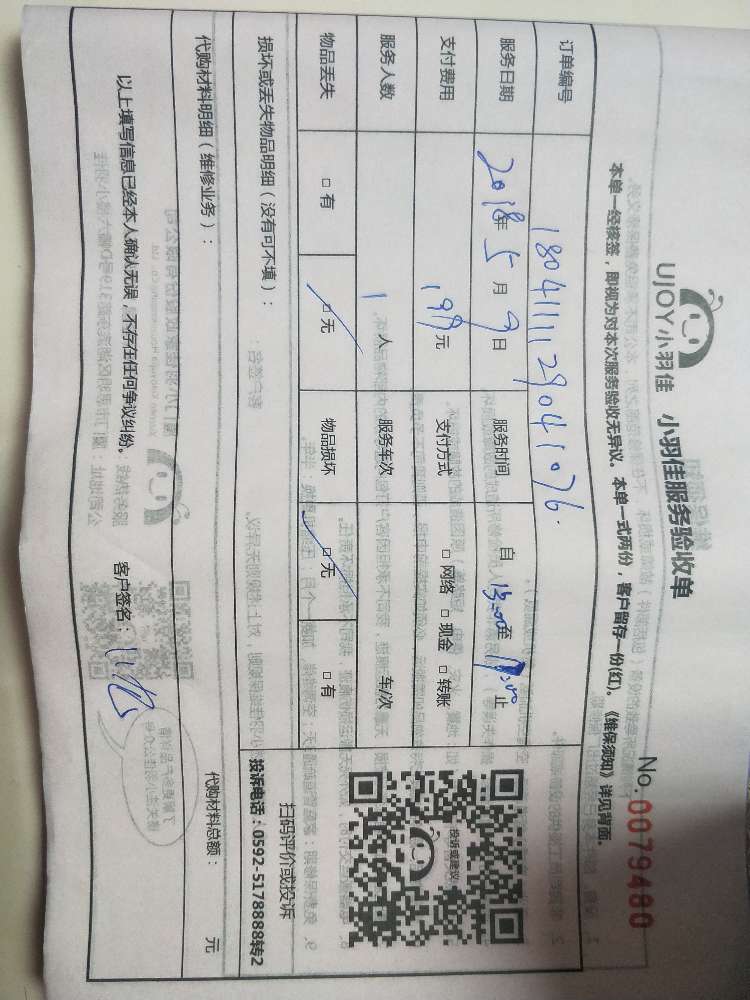 UJOY小羽佳 小羽佳服务验收单
No. 0079480
本单一经核签，即视为对本次服务验收无异议。本单一式两份，客户留存一份(红)。《维保须知》详见背面。
订单编号 1804111129041076
服务日期 2018年5月9日 服务时间 自13:00至17:00止
支付费用 199元 支付方式 □网络 □现金 □转账
服务人数 1人 服务车次 车/次
物品丢失 □有 □无 物品损坏 □无 □有
投诉或建议
扫码评价或投诉
损坏或丢失物品明细（没有可不填）：
投诉电话：0592-5178888转2
代购材料明细（维修业务）：
代购材料总额： 元
以上填写信息已经本人确认无误，不存在任何争议纠纷。
客户签名：